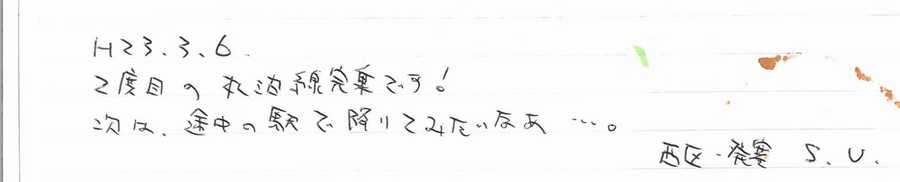 H23.3.6.
2度目の札沼線完乗です!
次は、途中の駅で降りてみたいなあ…。
西区・発寒 S.U.